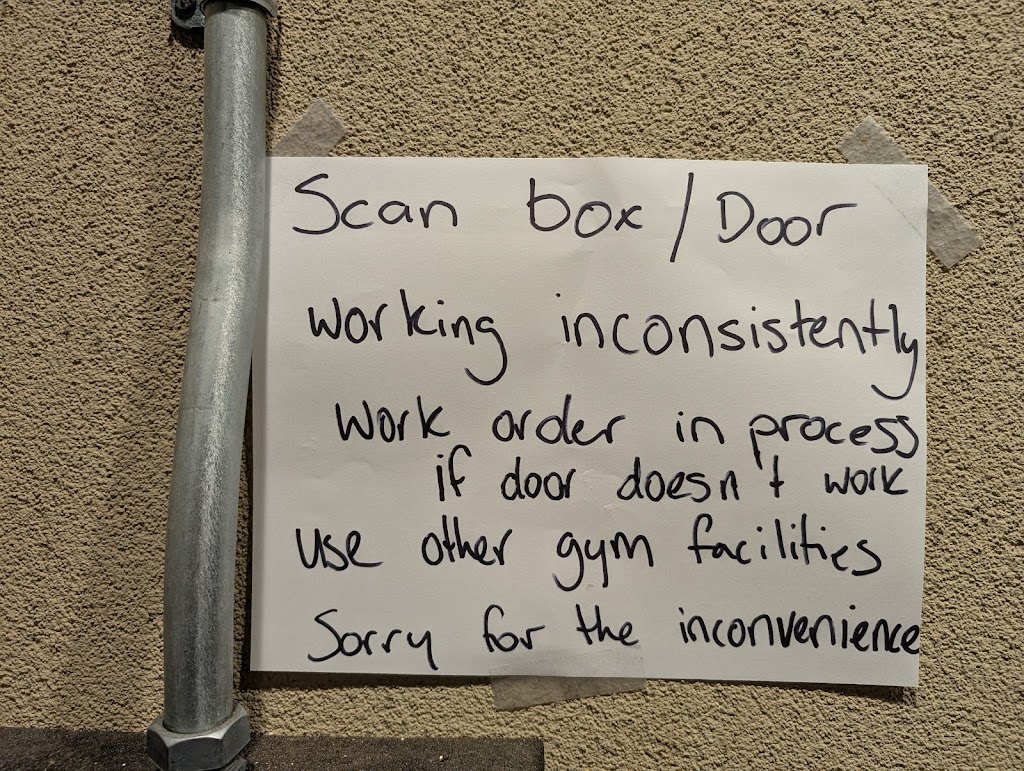 Scan box / Door
working inconsistently
work order in process
if door doesn't work
use other gym facilities
Sorry for the inconvenience